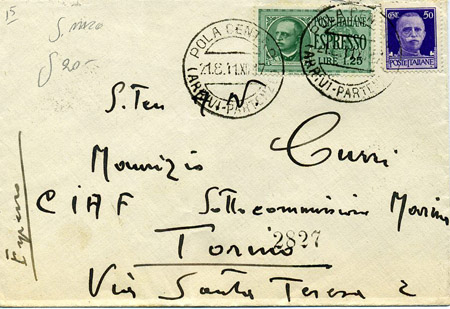 15
S. Marco
S 20-
POSTE ITALIANE
ESPRESSO
LIRE 1,25
CENT 50
POSTE ITALIANE
POLA CENTRO
(ARRIVI-PARTENZE)
(ARRIVI-PARTENZE)
S. Ten
Maurizio Curri
CIAF Sottocommissione Marina
Torino
2827
Via Santa Teresa 2
Espresso